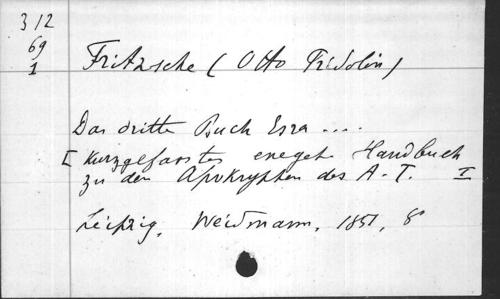 312
69
1
Fritzsche (Otto Fridolin)
Das dritte Buch Esra ....
[Kurzgefasstes exeget. Handbuch
zu den Apokryphen des A. T. I
Leipzig, Weidmann, 1851, 8°